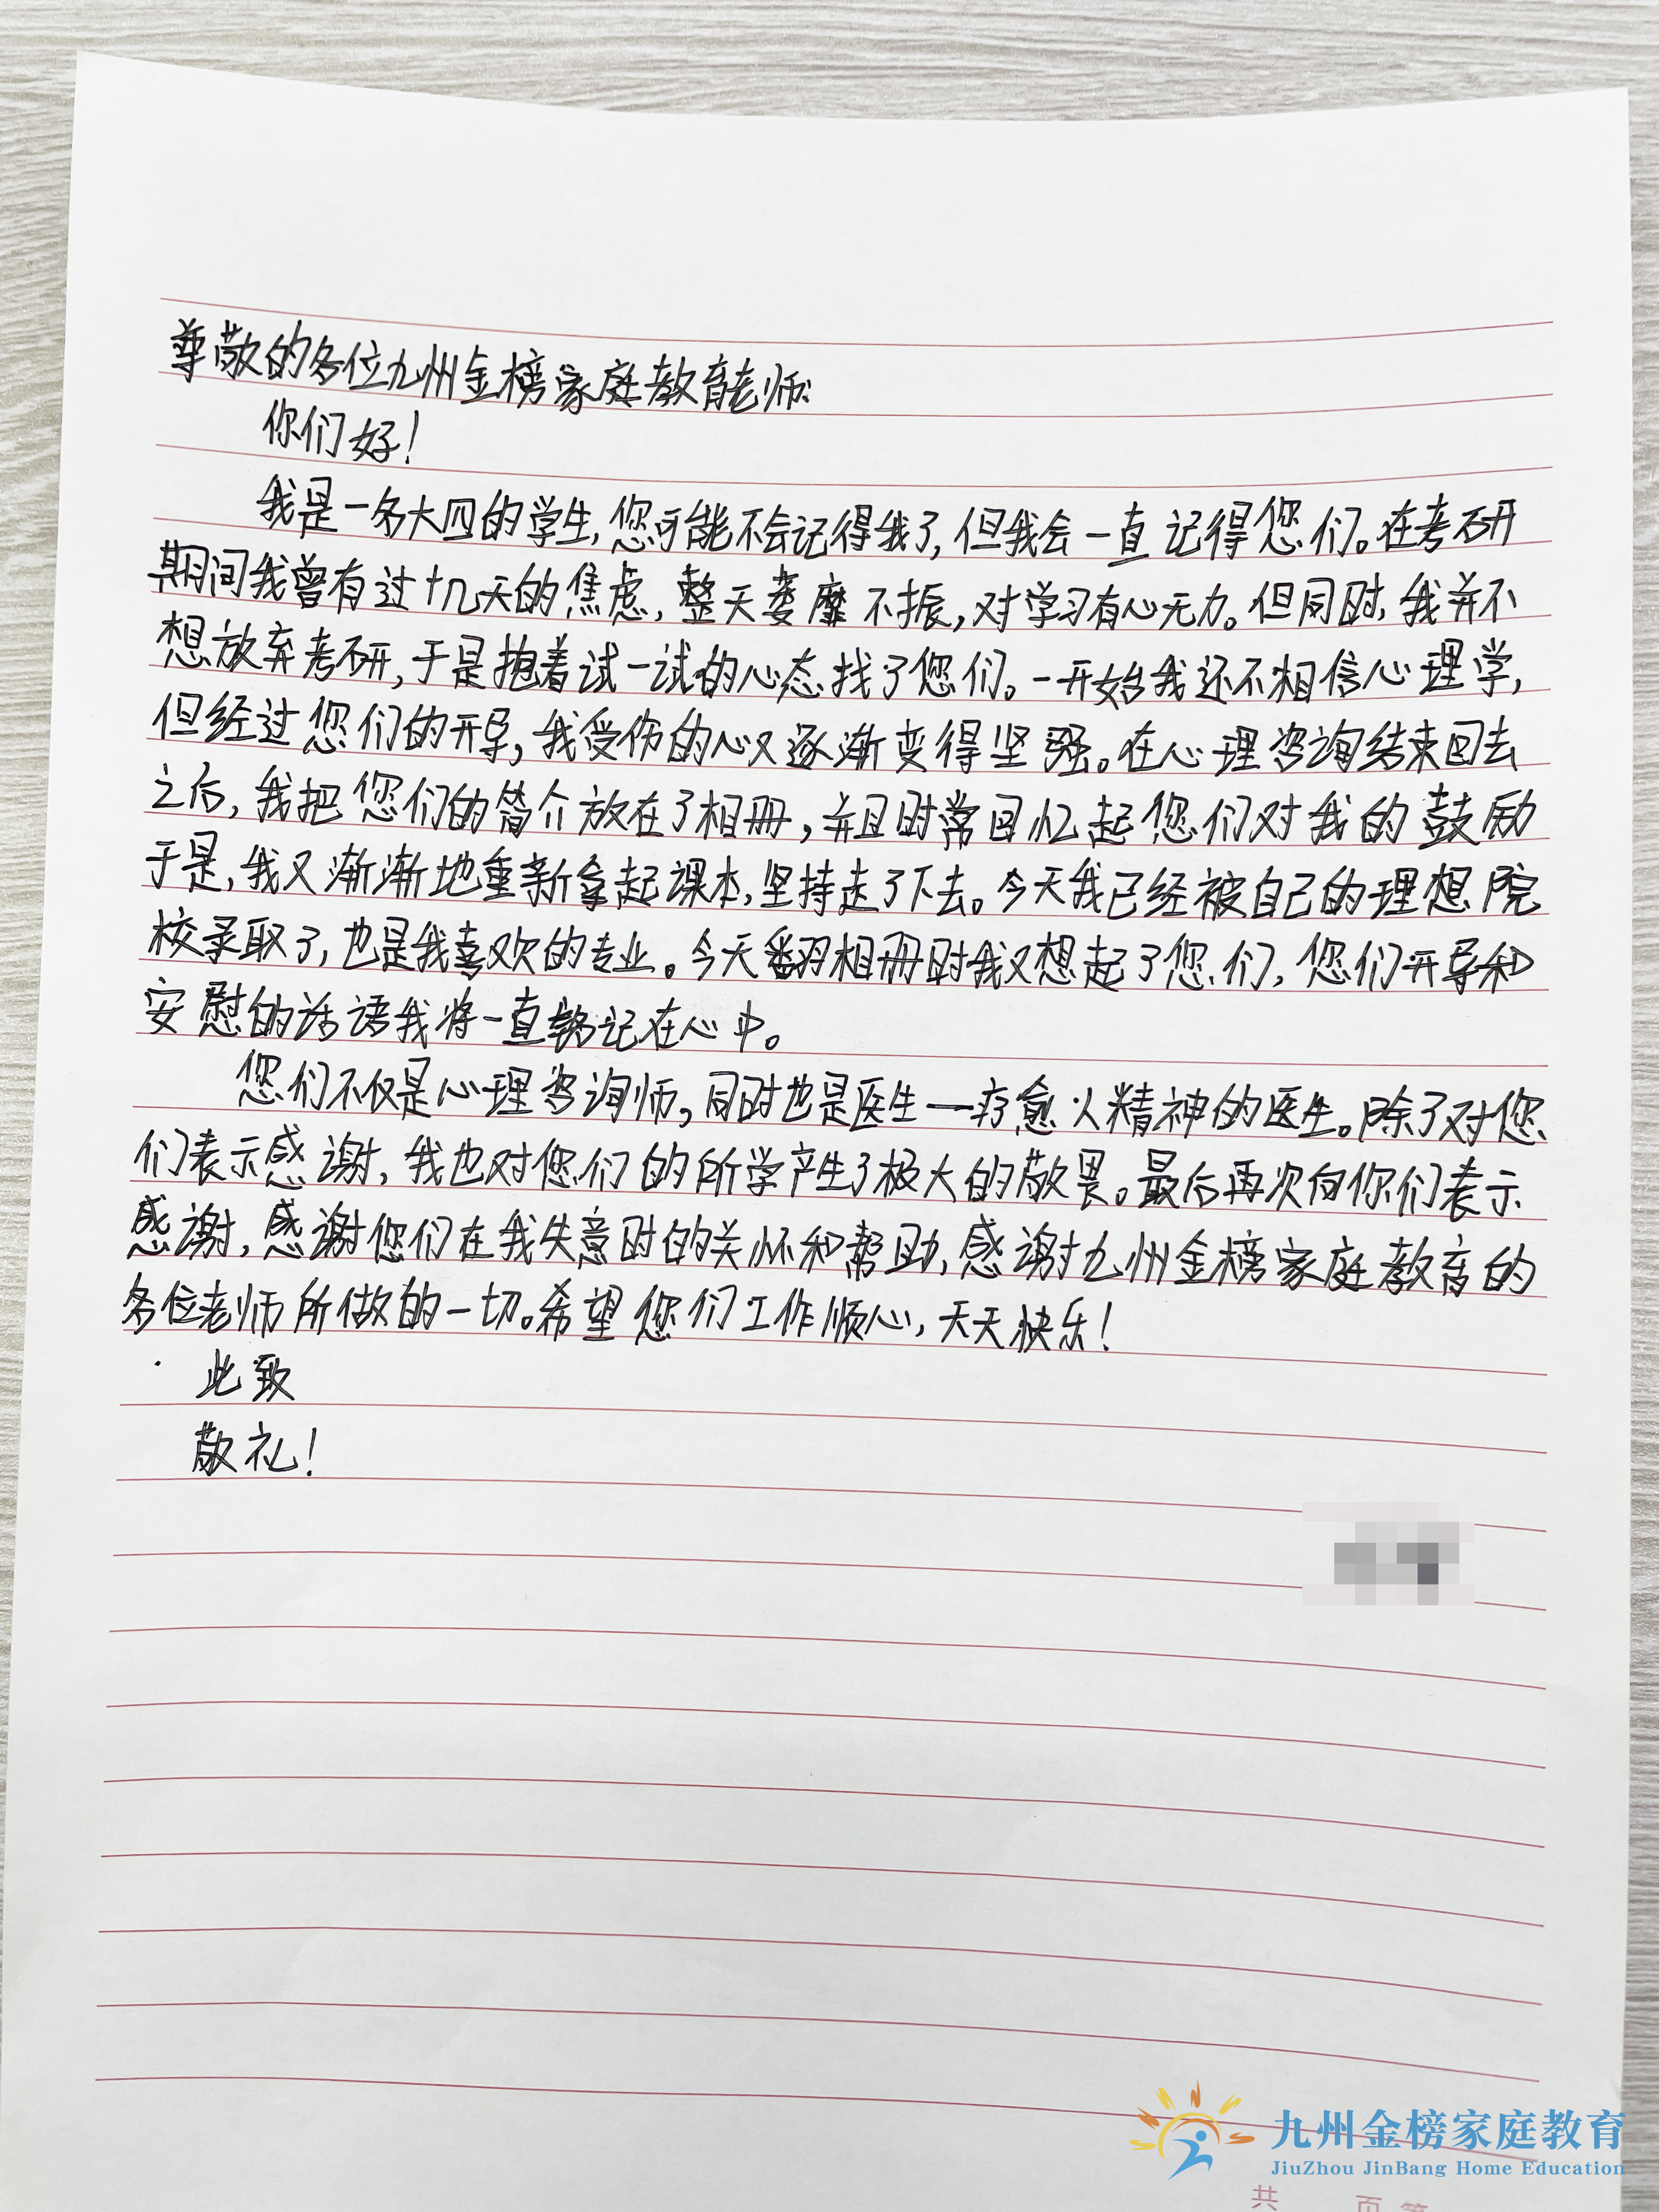 尊敬的各位九州金榜家庭教育老师:
你们好!
我是一名大四的学生,您可能不会记得我了,但我会一直记得您们。在考研
期间我曾有过十几天的焦虑,整天萎靡不振,对学习有心无力。但同时,我并不
想放弃考研,于是抱着试一试的心态找了您们。一开始我还不相信心理学,
但经过您们的开导,我受伤的心又逐渐变得坚强。在心理咨询结束回去
之后,我把您们的简介放在了相册,并且时常回忆起您们对我的鼓励
于是,我又渐渐地重新拿起课本,坚持走了下去。今天我已经被自己的理想院
校录取了,也是我喜欢的专业。今天翻相册时我又想起了您们,您们开导和
安慰的话语我将一直铭记在心中。
您们不仅是心理咨询师,同时也是医生一疗愈人精神的医生。除了对您
们表示感谢,我也对您们的所学产生了极大的敬畏。最后再次向你们表示
感谢,感谢您们在我失意时的关怀和帮助,感谢九州金榜家庭教育的
各位老师所做的一切。希望您们工作顺心,天天快乐!
此致
敬礼!
九州金榜家庭教育
JiuZhou JinBang Home Education
共 页 第